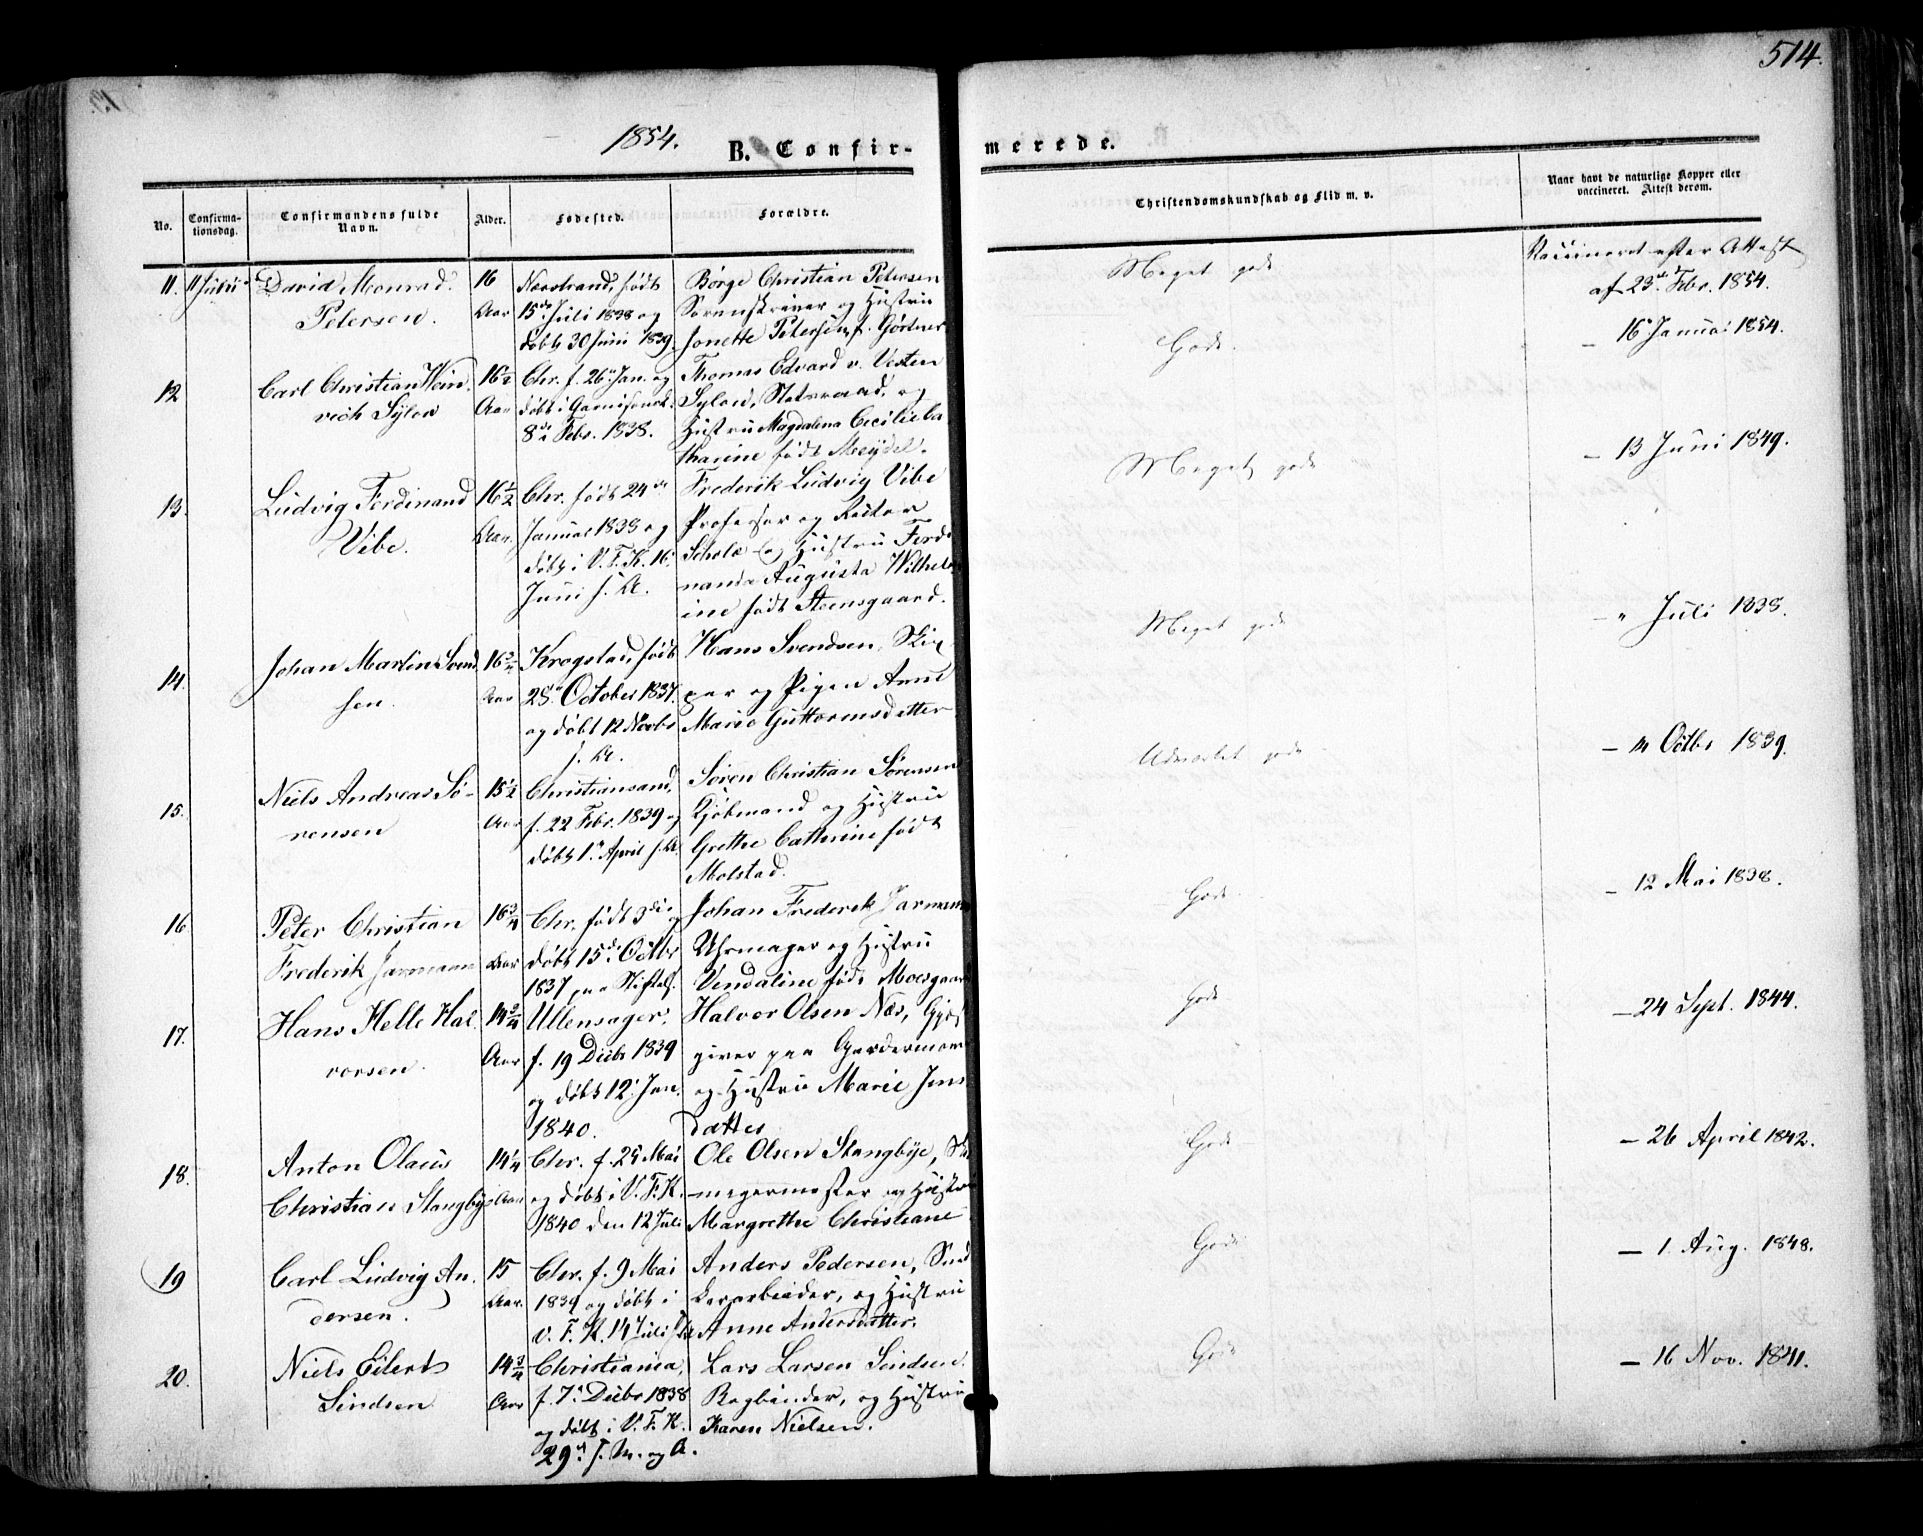 514.
1854.
B. Confir-
merede.
No.
Confirma-
tionsdag.
Confirmandens fulde
Navn.
Alder.
Fødested.
Forældre.
Christendomskundskab og Flid m. v.
Naar havt de naturlige Kopper eller
vaccineret. Attest derom.
11. 11 Juli David Monrad 16 Nærstrand, født Børge Christian Petersen Meget godt Vaccineret efter Attest
Petersen. Aar 15de Juli 1838 og Sorenskriver og Hustru af 23de Febr. 1854.
døbt 30 Juni 1839. Jonette Petersen, f. Gørtner
12 Carl Christian Hein- 16½ Chr. f. 26 Jan. og Thomas Edvard v. Vesten Godt. – 16 Januar 1854.
rich Sylow Aar døbt i Garnisonsk. Sylow, Statsraad, og
8de Febr. 1838. Hustru Magdalena Cecilie Ca
tharine født Meydel.
13. Ludvig Ferdinand 16½ Chr. født 24de Frederik Ludvig Vibe Meget godt – 13 Juni 1849.
Vibe. Aar. Januar 1838 og Professor og Rector
døbt i V. F. K. 16 Schole og Hustru Ferdi
Juni s. A. nanda Augusta Wilhelm
ine født Steensgaard.
14. Johan Martin Svend 16¾ Krogstad, født Hans Svendsen, Skip Meget godt – " Juli 1838.
sen. Aar 28 October 1837. per og Pigen Anne
og døbt 12 Novbr Marie Guttormsdatter
s. A.
15. Niels Andreas Sø- 15½ Christiansand, Søren Christian Sørensen Udmærket godt – 14 Octbr 1839.
rensen Aar f. 22 Febr. 1839 og Kjøbmand og Hustru
døbt 1 April s. A. Grethe Cathrine født
Molstad.
16 Peter Christian 16¾ Chr. født 3die og Johan Frederik Jarmann Godt – 12 Mai 1838.
Frederik Jarmann Aar døbt 15de Octbr Uhrmager og Hustru
1837 paa Stiftels. Vendaline født Moesgaard
17. Hans Helle Hal 14¾ Ullensager, Halvor Olsen Næs, Gjæst Godt – 24 Sept. 1844.
vorsen. Aar f. 19 Decbr 1839 giver paa Gardermoen
og døbt 12 Jan. og Hustru Marie Jens
1840. datter
18. Anton Olaus 14¼ Chr. f. 25 Mai Ole Olsen Stangbye, Sko Godt – 26 April 1842.
Christian Stangbye Aar og døbt i V. F. K. magermester og Hustru
1840 den 12 Juli Margrethe Christiane
19 Carl Ludvig An. 15 Chr. f. 9 Mai Anders Pedersen, Snid Godt – 1. Aug. 1848.
dersen. Aar. 1839 og døbt i kerarbeider, og Hustru
V. F. K. 14 Juli s. A. Anne Andersdatter.
20. Niels Eilert 14¾ Christiania, Lars Larsen Sindsen Godt – 16 Nov. 1841.
Sindsen Aar f. 7 Decbr 1838 Bogbinder, og Hustru
og døbt i V. F. K. Karen Nielsen.
29de s. M. og A.